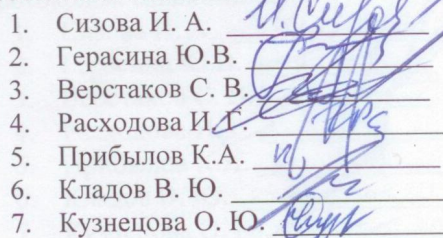 1. Сизова И. А.
2. Герасина Ю.В.
3. Верстаков С. В.
4. Расходова И. Г.
5. Прибылов К.А.
6. Кладов В. Ю.
7. Кузнецова О. Ю.